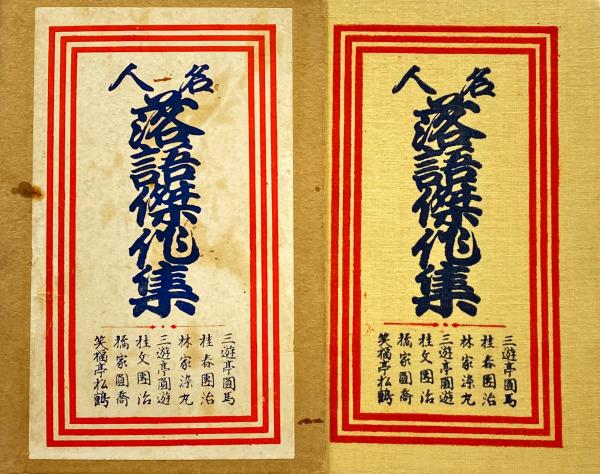 名人
落語傑作集
三遊亭圓馬
桂春團治
林家染丸
三遊亭圓遊
桂文團治
橘家圓喬
笑福亭松鶴
名人
落語傑作集
三遊亭圓馬
桂春團治
林家染丸
三遊亭圓遊
桂文團治
橘家圓喬
笑福亭松鶴